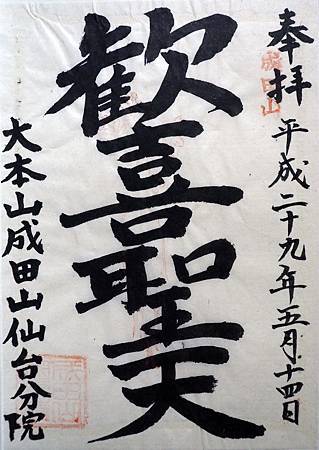 奉拝
成田山
平成二十九年五月十四日
歓喜聖天
大本山成田山仙台分院